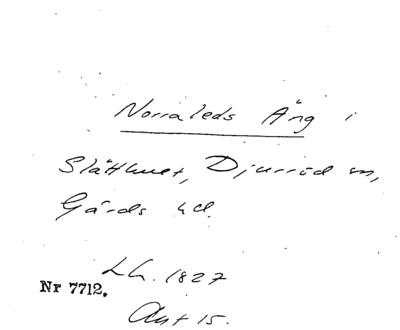 Norraleds Äng i
Slätthuet, Djurröd sn,
Gärds hd.
LG. 1827
Nr 7712.
Akt 15.